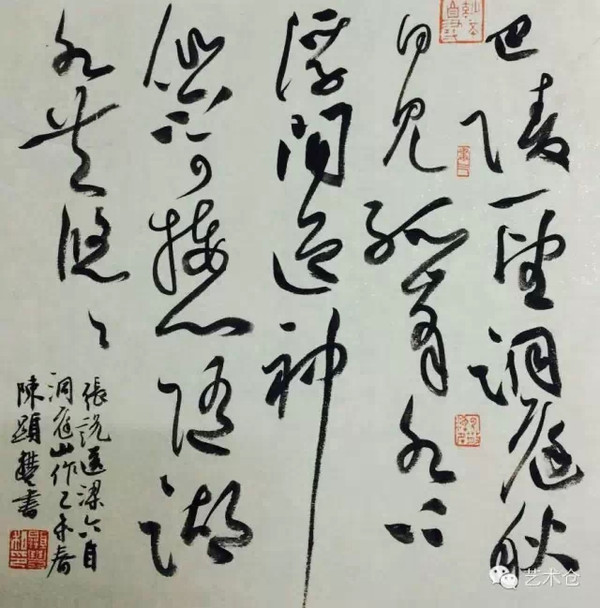 巴陵一望洞庭秋
日见孤峯水上
浮闻道神
仙不可接心随湖
水共悠々
張説送梁六自
洞庭山作乙未春
陳顕書
艺术仓